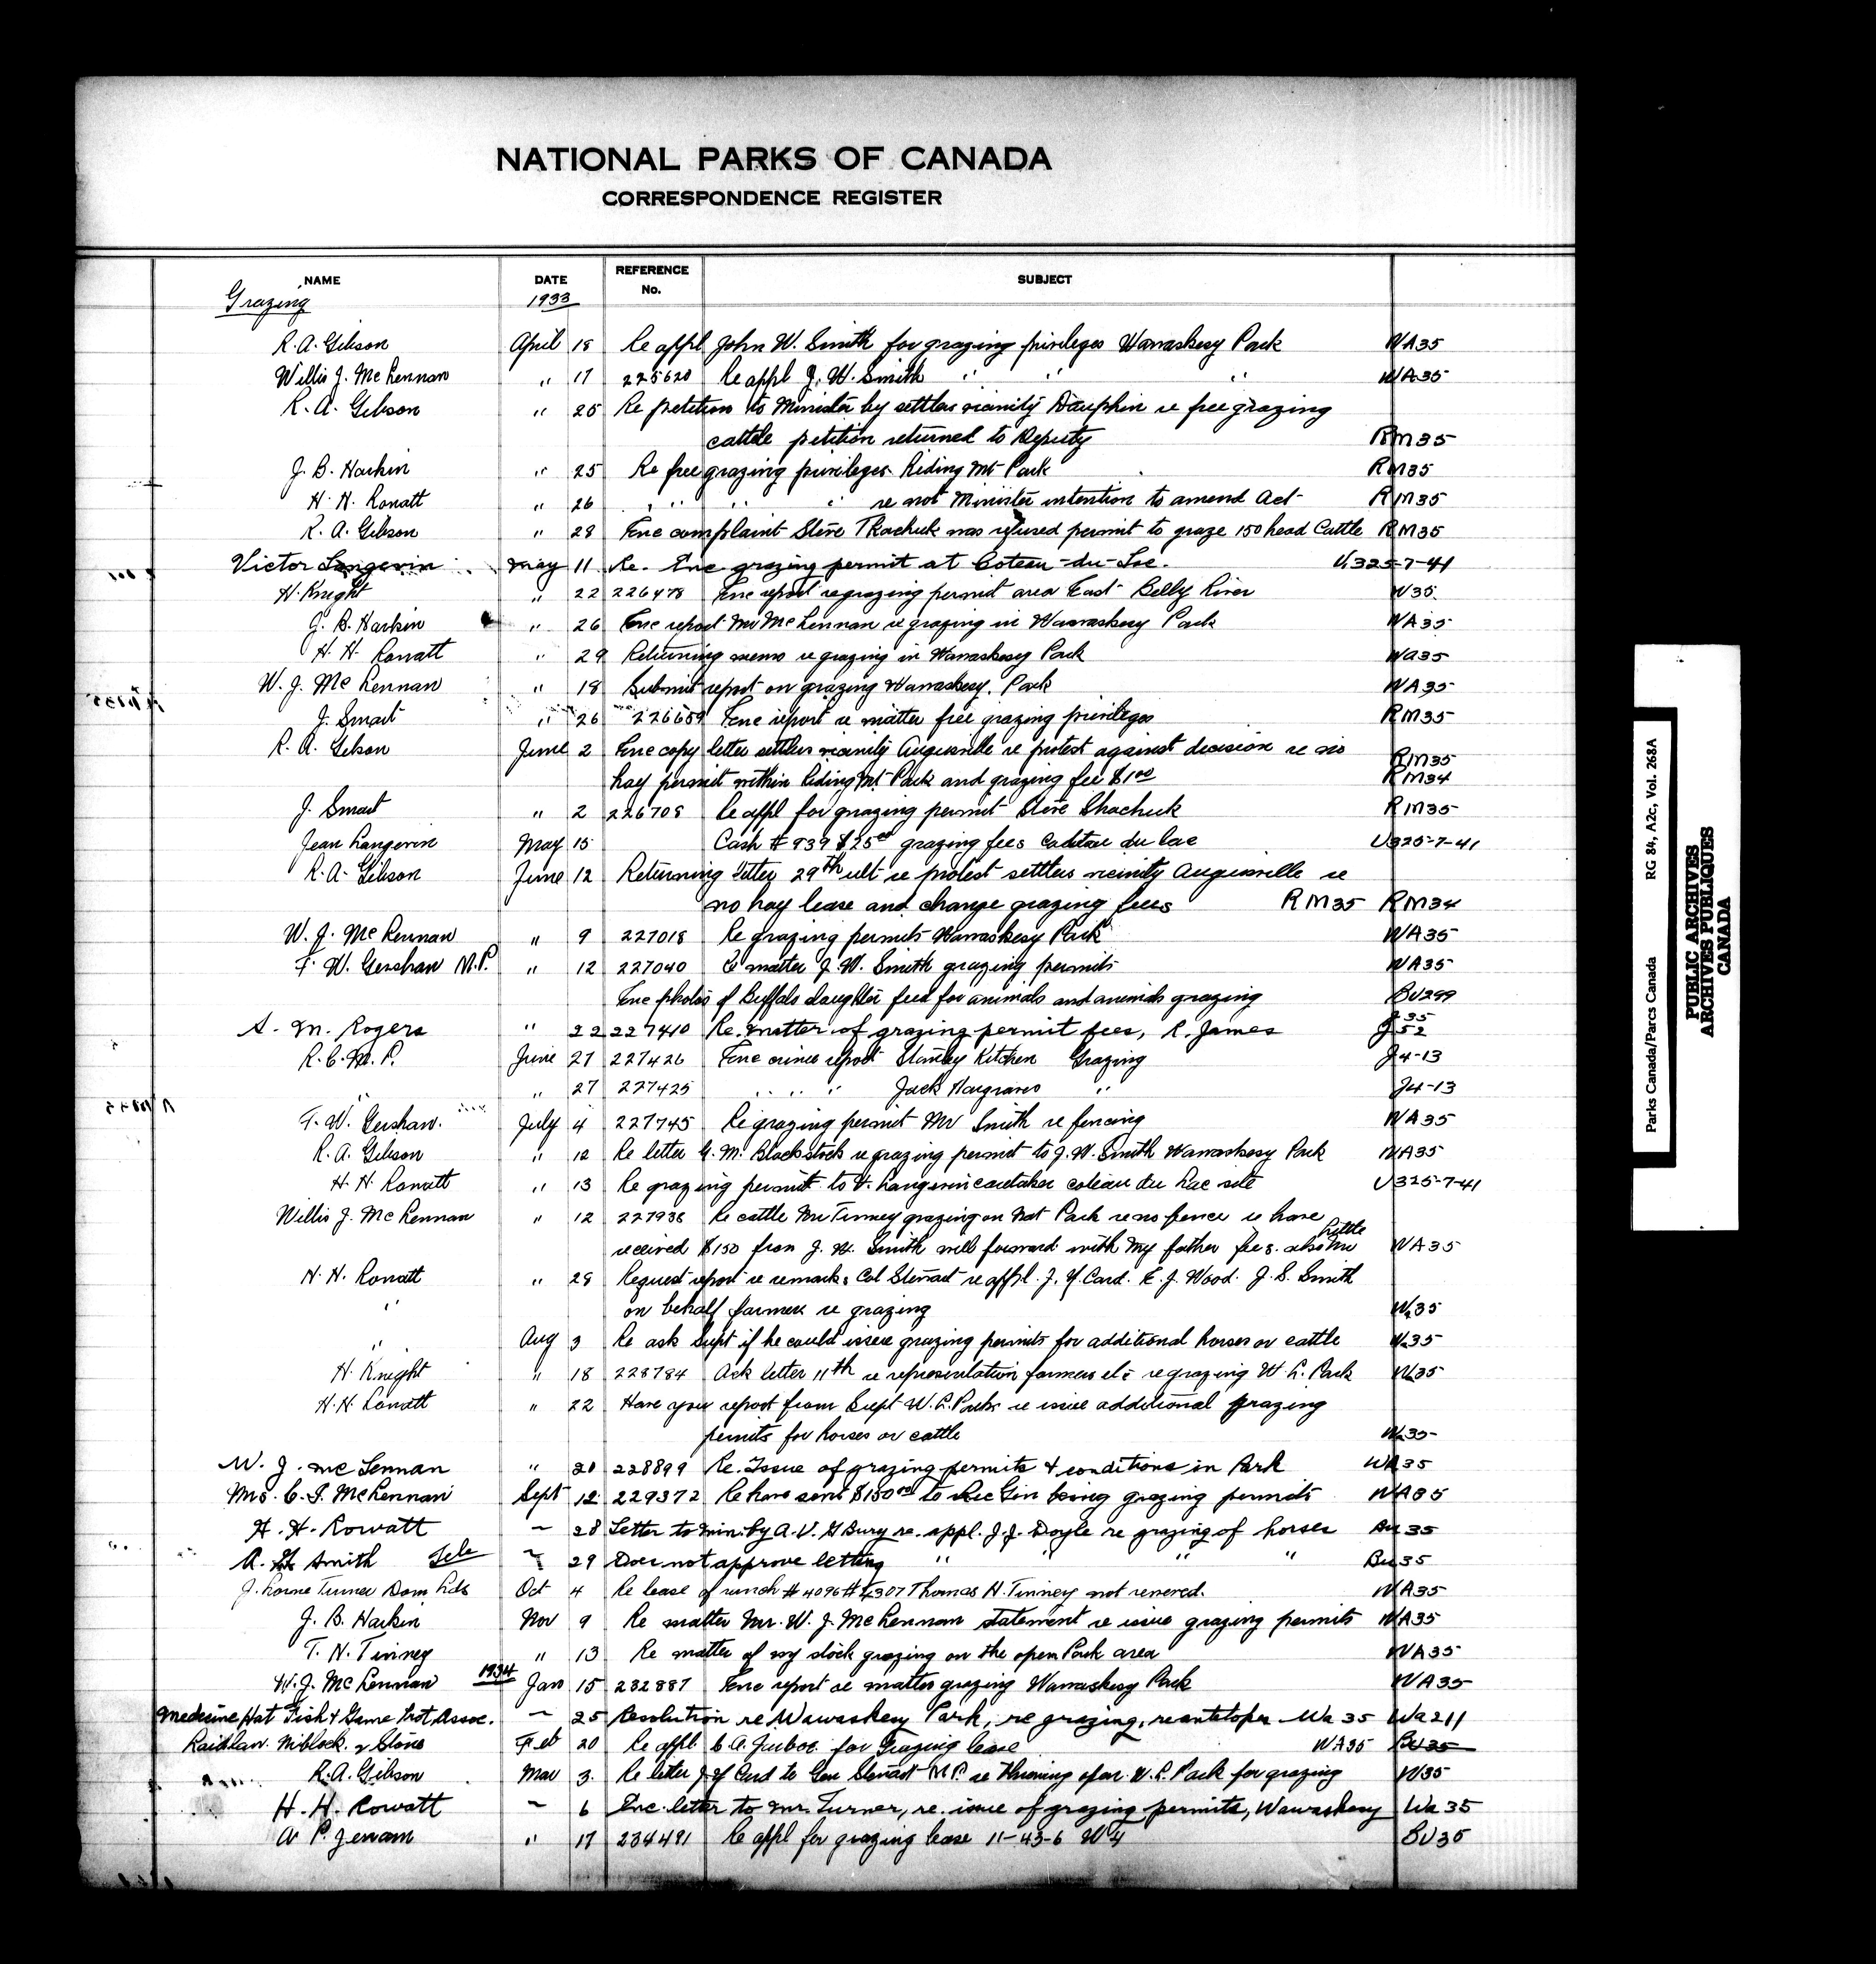 NATIONAL PARKS OF CANADA
CORRESPONDENCE REGISTER
NAME DATE REFERENCE No. SUBJECT
Grazing 1933
R. A. Gibson April 18 Re appl John W. Smith for grazing privileges Wawaskesy Park WA35
Willis J. McLennan " 17 225620 Re appl J. W. Smith " " " WA35
R. A. Gibson " 25 Re petition to Minister by settlers vicinity Dauphin re free grazing
cattle petition returned to Deputy RM35
J. B. Harkin " 25 Re free grazing privileges Riding Mt Park RM35
H. H. Rowatt " 26 " " " " re not Minister intention to amend Act RM35
R. A. Gibson " 28 Enc complaint Steve Tkachuk was refused permit to graze 150 head Cattle RM35
Victor Langevin May 11 Re. Enc grazing permit at Coteau-du-Lac. U325-7-41
H. Knight " 22 226478 Enc report re grazing permit area East Belly River W35
J. B. Harkin " 26 Enc report Mr McLennan re grazing in Wawaskesy Park WA35
H. H. Rowatt " 29 Returning memo re grazing in Wawaskesy Park Wa35
W. J. McLennan " 18 Submit report on grazing Wawaskesy. Park WA35
J. Smart " 26 226659 Enc report re matter free grazing privileges RM35
R. A. Gibson June 2 Enc copy letter settlers vicinity Angusville re protest against decision re no RM35
hay permit within Riding Mt. Park and grazing fee $1.00 RM34
J. Smart " 2 226708 Re appl for grazing permit Steve Shachuk RM35
Jean Langevin May 15 Cash # 939 $25.00 grazing fees Coteau du Lac U325-7-41
R. A. Gibson June 12 Returning letter 29th ult re protest settlers vicinity Angusville re
no hay lease and change grazing fees RM35 RM34
W. J. McLennan " 9 227018 Re grazing permits Wawaskesy Park WA35
F. W. Gershaw M.P. " 12 227040 Re matter J. W. Smith grazing permits WA35
Enc photos of Buffalo slaughter feed for animals and animals grazing BU299
A. M. Rogers " 22 227410 Re. matter of grazing permit fees, R. James J35 J52
R. C. M. P. June 27 227426 Enc crime report Stanley Kitchen Grazing J4-13
" 27 227425 " " " Jack Hargraves " J4-13
F. W. Gershaw. July 4 227745 Re grazing permit Mr Smith re fencing WA35
R. A. Gibson " 12 Re letter G. M. Blackstock re grazing permit to J. W. Smith Wawaskesy Park WA35
H. H. Rowatt " 13 Re grazing permit to V. Langevin caretaker coteau du Lac site U325-7-41
Willis J. McLennan " 12 227936 Re cattle Mr Tinney grazing on Nat Park re no fence re have
received $150 from J. W. Smith will forward with my father fees. also Mr cattle WA35
H. H. Rowatt " 28 Request report re remarks Col Stewart re appl. J. Y. Card. E. J. Wood. J. S. Smith
" on behalf farmers re grazing W35
" Aug 3 Re ask Supt if he could issue grazing permits for additional horses or cattle W35
H. Knight " 18 228784 Ack letter 11th re representation farmers etc re grazing W. L. Park W35
H. H. Rowatt " 22 Have you report from Supt W. L. Park re issue additional grazing
permits for horses or cattle W35
W. J. McLennan " 20 228899 Re. Issue of grazing permits & conditions in Park WA35
Mrs. C. I. McLennan Sept 12 229372 Re have sent $150.00 to Rec Gen being grazing permits WA35
H. H. Rowatt ~ 28 Letter to Min. by A. U. G Bury re. appl. J. J. Doyle re grazing of horses Bu 35
A. G. Smith Tele ~ 29 Does not approve letting " " " " Bu35
J. Lorne Turner Dom Lds Oct 4 Re lease of ranch # 4096 # 4307 Thomas H. Tinney not renewed. WA35
J. B. Harkin Nov 9 Re matter Mr. W. J. McLennan statement re issue grazing permits WA35
T. N. Tinney " 13 Re matter of my stock grazing on the open Park area WA35
W. J. McLennan 1934 Jan 15 232887 Enc report re matter grazing Wawaskesy Park WA35
Medicine Hat Fish & Game Prot Assoc. ~ 25 Resolution re Wawaskesy Park, re grazing, re antelope Wa 35 Wa211
Laidlaw. Niblock. & Stone Feb 20 Re appl C. A. for Grazing lease WA35 BU35
R. A. Gibson Mar 3. Re letter J. Y Card to Gen Stewart M.P. re throwing open W. L. Park for grazing W35
H. H. Rowatt ~ 6 Enc. letter to Mr. Turner, re. issue of grazing permits, Wawaskesy Wa 35
A P. Jenam " 17 234491 Re appl for grazing lease 11-43-6 W4 BU35
Parks Canada/Parcs Canada RG 84, A2c, Vol. 268A
PUBLIC ARCHIVES
ARCHIVES PUBLIQUES
CANADA